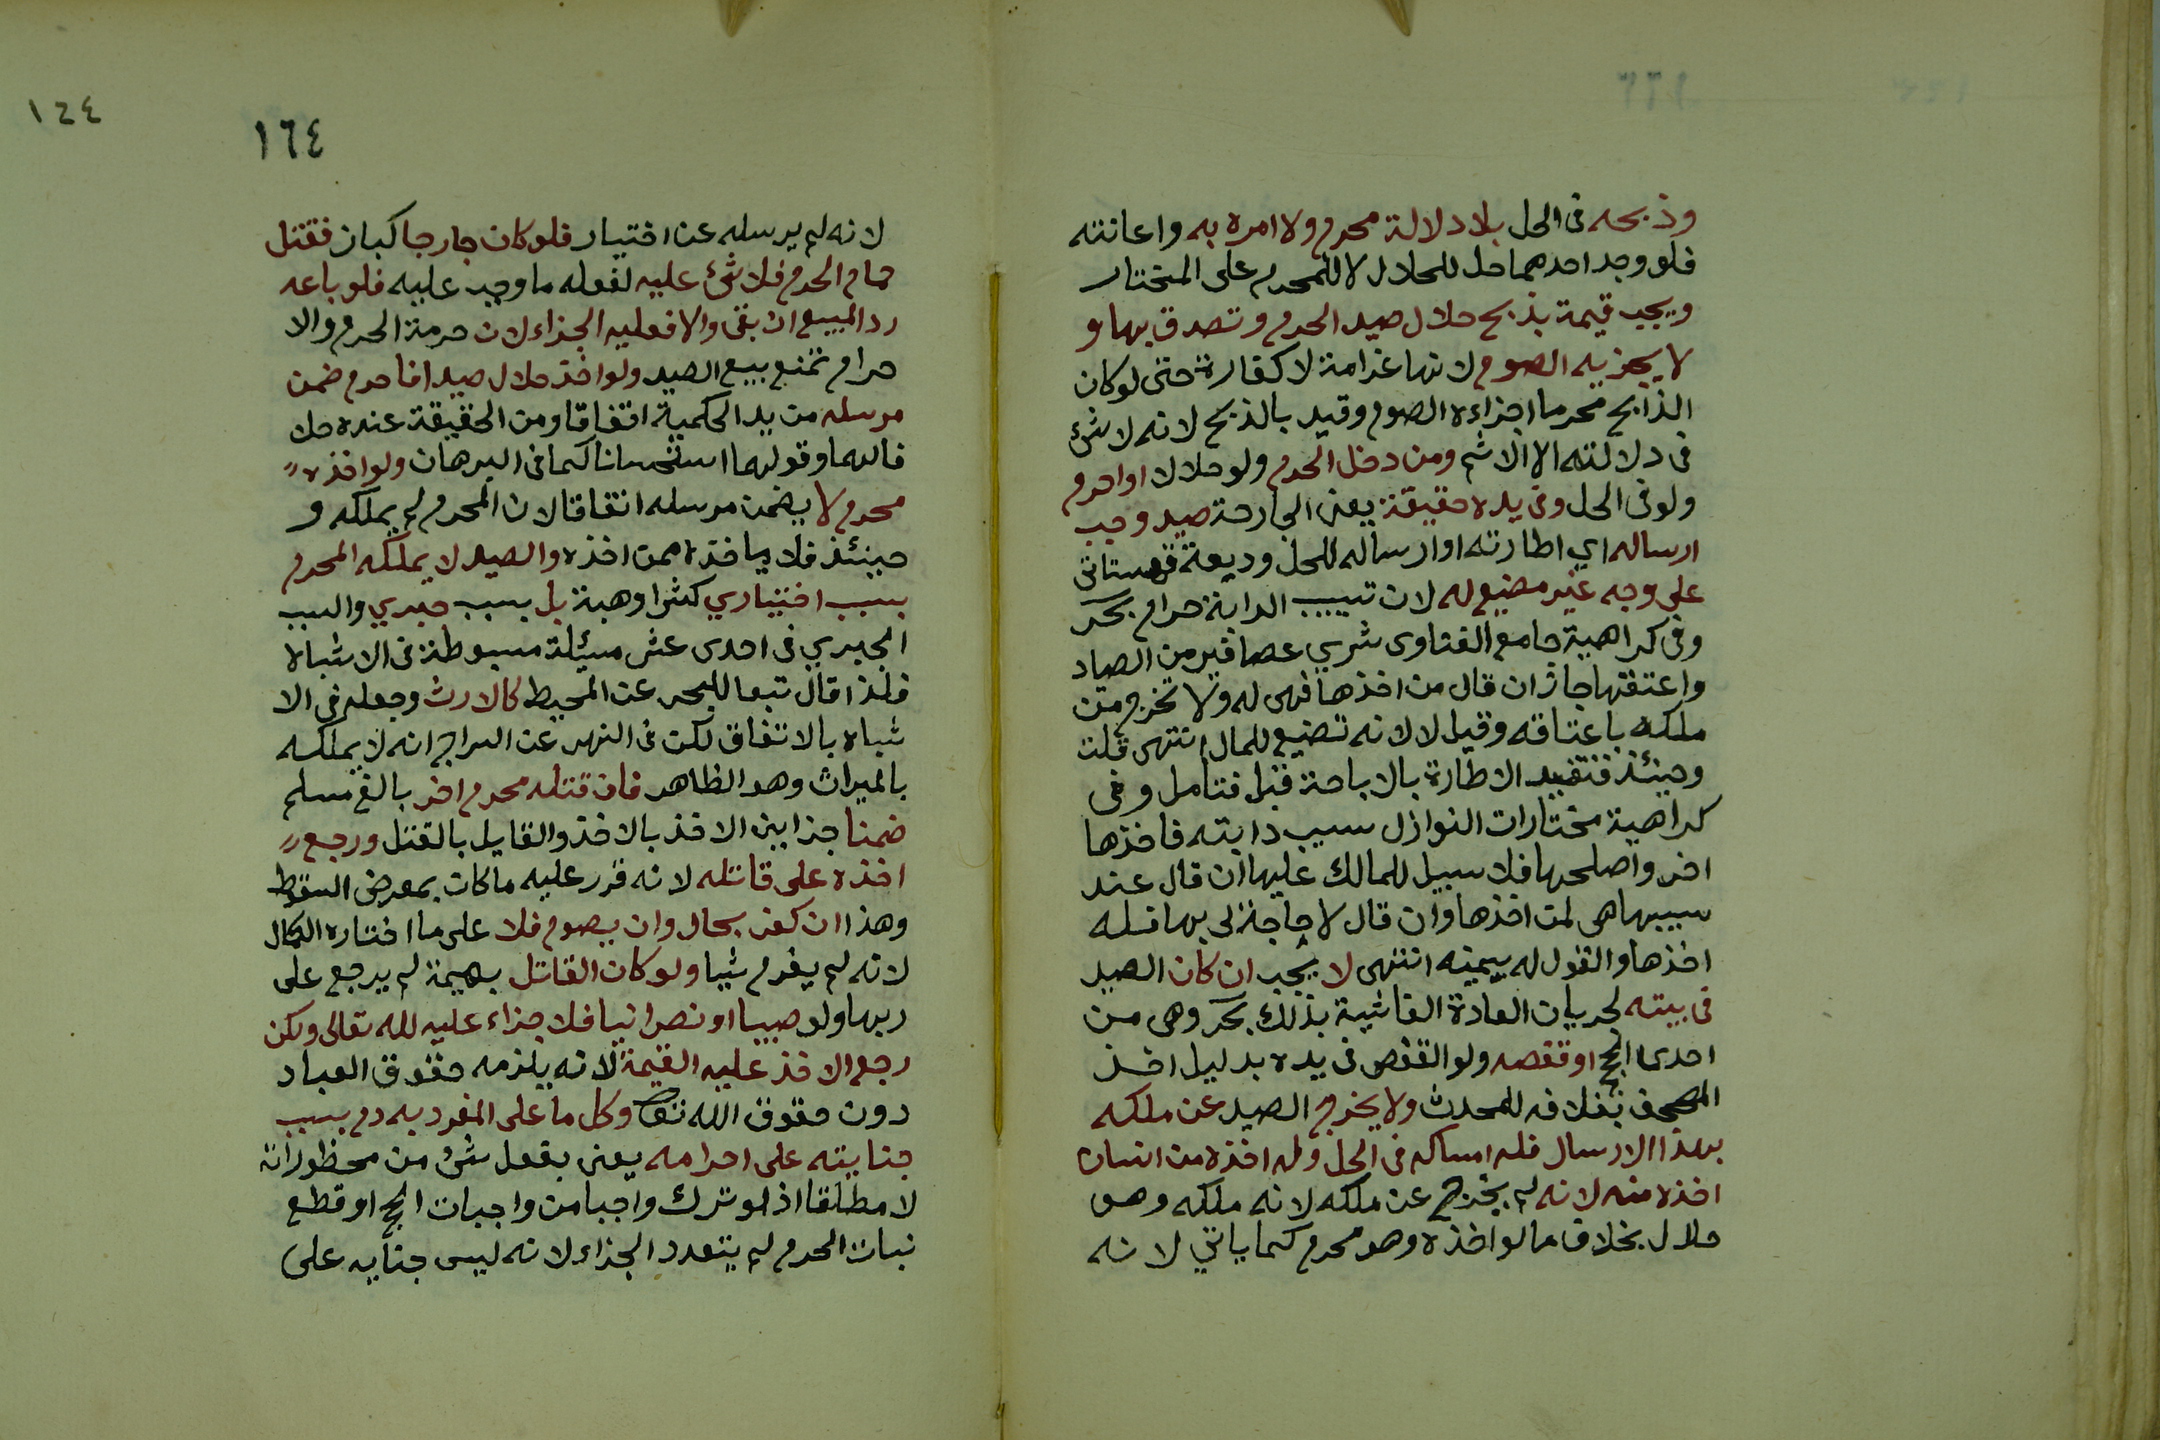 وذبحه فى الحل بلا دلالة محرم ولا امره به واعانته
فلو وجد احدهما حل للحلال لا للمحرم على المختار
ويجب قيمة بذبح حلال صيد الحرم وتصدق بها و
لا يجزيه الصوم لانها غرامة لا كفارة حتى لو كان
الذابح محرما اجزاءه الصوم وقيد بالذبح لانه لا شئ
فى دلالته الا الاثم ومن دخل الحرم ولو حلالا او احرم
ولو فى الحل وفى يده حقيقة يعنى الجارحة صيد وجب
ارساله اي اطارته او ارساله للحل وديعة قهستانى
على وجه غير مضيع له لان تسييب الدابة حرام بحر
وفى كراهية جامع الفتاوى شرى عصافير من الصياد
واعتقها جاز ان قال من اخذها فهى له ولا تخرج من
ملكه باعتاقه وقيل لا لانه تضيع للمال انتهى قلت
وحينئذ فتقييد الاطارة بالاباحة فتامل وفى
كراهية مختارات النوازل سيب دابته فاخذها
اخر واصلحها فلا سبيل للمالك عليها ان قال عند
سيبها هى لمن اخذها وان قال لا حاجة لى بها فله
اخذها والقول له بيمينه انتهى لا يجب ان كان الصيد
فى بيته لجريان العادة الفاشية بذلك بحر وهى من
احدى الحج او قفصه ولو القفص فى يده بدليل اخذ
المصحف بغلافه للمحدث ولا يخرج الصيد عن ملكه
بهذا الارسال فله امساكه فى الحل وله اخذه من انسان
اخذه منه لانه لم يخرج عن ملكه لانه ملكه وهو
حلال بخلاف ما لو اخذه وهو محرم كما ياتي لانه
١٦٤
١٦٤
لانه لم يرسله عن اختيار فلو كان جارحا كباز فقتل
حمام الحرم فلا شئ عليه لفعله ما وجب عليه فلو باعه
رد المبيع ان بقى والا فعليه الجزاء لان حرمة الحرم والا
حرام تمنع بيع الصيد ولو اخذ حلال صيدا فاحرم ضمن
مرسله من يد الحكمية اتفاقا ومن الحقيقة عنده حلا
فالهما وقولهما استحسانا كما فى البرهان ولو اخذه
محرم لا يضمن مرسله اتفاقا لان المحرم لم يملكه و
حينئذ فلا ياخذه ممن اخذه والصيد لا يملكه المحرم
بسبب اختياري كشرا وهبة بل بسبب جبري والسبب
الجبري فى احدى عشر مسئلة مبسوطة فى الاشباه
فلذا قال تبعا للبحر عن المحيط كالارث وجعله فى الا
شباه بالاتفاق لكن فى النهر عن السراج انه لا يملكه
بالميراث وهو الظاهر فان قتله محرم اخر بالغ مسلم
ضمنا جزابين الاخذ بالاخذ والقايل بالقتل ورجع
اخذه على قاتله لانه قرر عليه ما كان بمعرض السقوط
وهذا ان كفر بمال وان بصوم فلا على ما اختاره الكمال
لانه لم يغرم شيا ولو كان القاتل بهيمة لم يرجع على
ربها ولو صبيا او نصرانيا فلا جزاء عليه لله تعالى ولكن
رجع الاخذ عليه القيمة لانه يلزمه حقوق العباد
دون حقوق الله تعالى وكل ما على المفرد به دم بسبب
جنايته على احرامه يعنى بفعل شئ من محظوراته
لا مطلقا اذ لو ترك واجبا من واجبات الحج او قطع
نبات الحرم لم يتعدد الجزاء لانه ليس جنايه على